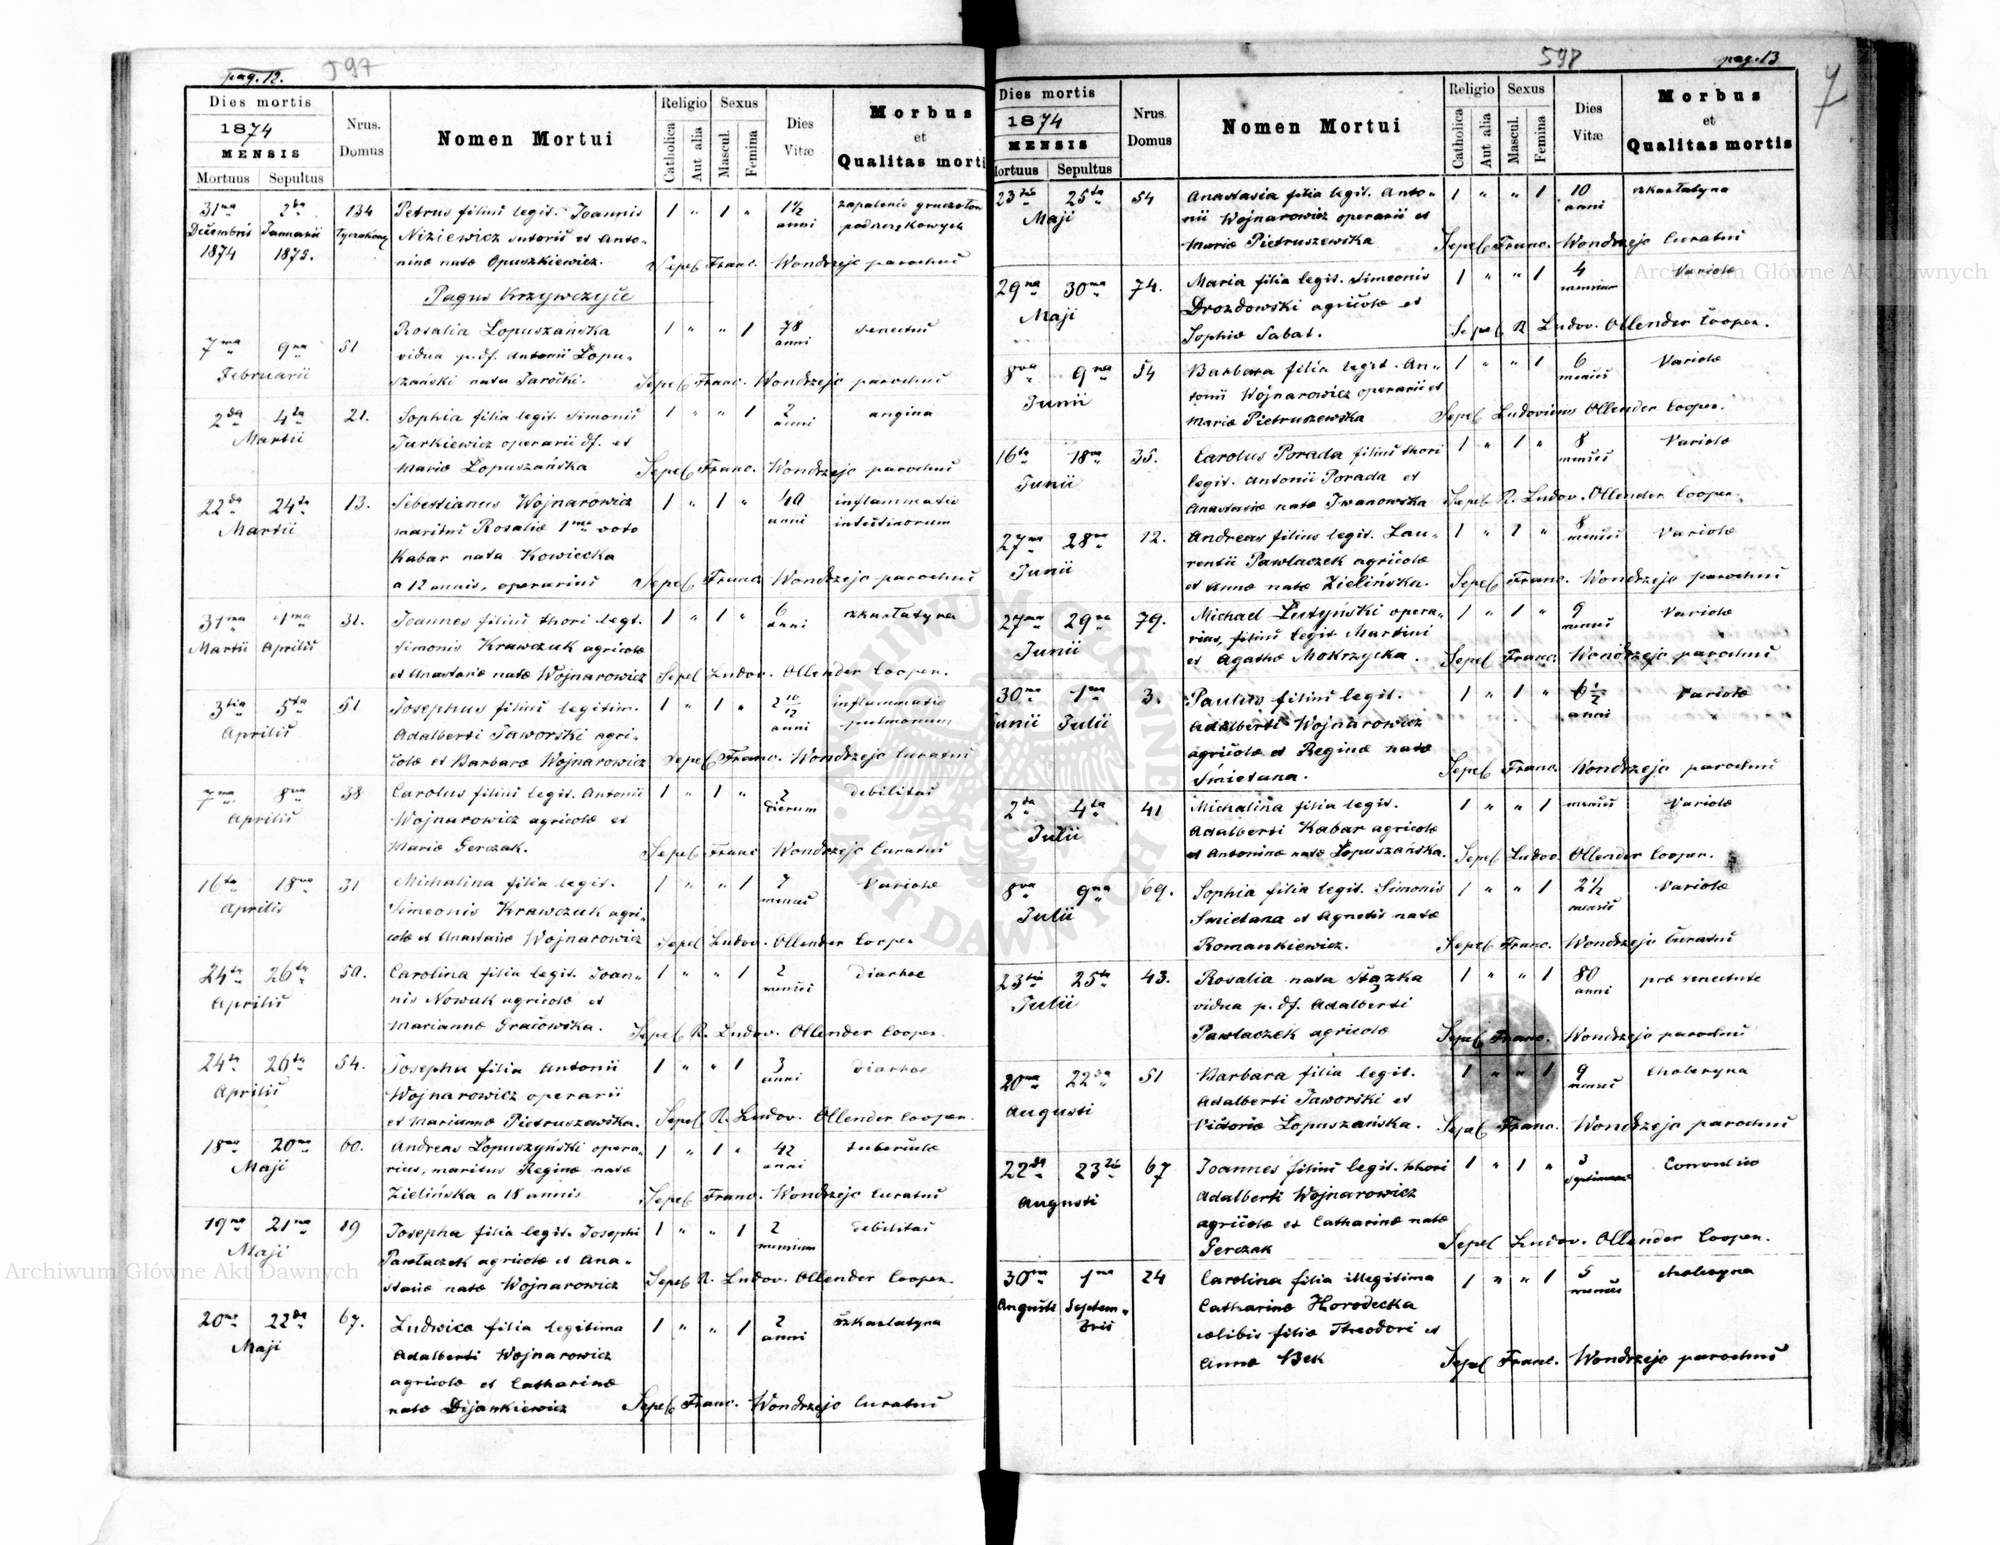 pag. 12. 597
Dies mortis
1874
MENSIS
Mortuus Sepultus
Nrus. Domus
Nomen Mortui
Religio Sexus
Catholica Aut alia Mascul. Femina
Dies Vitæ
Morbus
et
Qualitas morti
31ma 2da 134 Petrus filius legit. Joannis 1 " 1 " 1½ zapalenie gruczołów
Decembris Januarii Niziewicz sutoris et Anto- anni podszczękowych
1874 1875. ninæ natæ Opuszkiewicz. Sepel Franc. Wondrzejc parochus
Pagus Krzywczyce
7ma 9na 51 Rosalia Łopuszańska 1 " " 1 78 senectus
Februarii vidua p. df. Antonii Łopu- anni
szański nata Jarocki. Sepel Franc. Wondrzejc parochus
2da 4ta 21. Sophia filia legit. Simonis 1 " " 1 2 angina
Martii Turkiewicz operarii df. et anni
Mariæ Łopuszańska Sepel Franc. Wondrzejc parochus
22da 24ta 13. Sebestianus Wojnarowicz 1 " 1 " 40 inflammatio
Martii maritus Rosaliæ 1mo voto anni intestinorum
Kabar nata Kowiecka
a 12 annis, operarius Sepel Franc Wondrzejc parochus
31ma 1ma 31. Joannes filius thori legt. 1 " 1 " 6 szkarlatyna
Martii Aprilis Simonis Krawczuk agricolæ anni
et Anastasiæ natæ Wojnarowicz Sepel Ludov. Ollender Cooper.
3tia 5ta 51 Josephus filius legitim. 1 " 1 " 2 10/12 inflammatio
Aprilis Adalberti Jaworski agri- anni pulmonum
colæ et Barbaræ Wojnarowicz Sepel Franc. Wondrzejc Curatus
7ma 8va 38 Carolus filius legit. Antonii 1 " 1 " 2 debilitas
Aprilis Wojnarowicz agricolæ et dierum
Mariæ Gerczak. Sepel Franc Wondrzejc Curatus
16ta 18va 31 Michalina filia legit. 1 " " 1 7 Variolæ
Aprilis Simeonis Krawczuk agri- menses
colæ et Anastasiæ Wojnarowicz Sepel Ludov. Ollender Cooper
24ta 26ta 50. Carolina filia legit. Joan- 1 " " 1 2 diarhoe
Aprilis nis Nowak agricolæ et menses
Mariannæ Gracowska. Sepel R. Ludov. Ollender Cooper.
24ta 26ta 54. Josepha filia Antonii 1 " " 1 3 diarhoe
Aprilis Wojnarowicz operarii anni
et Mariannæ Pietruszewska. Sepel R. Ludov. Ollender Cooper.
18va 20ma 60. Andreas Łopuszyński opera- 1 " 1 " 42 tuberculæ
Maji rius, maritus Reginæ natæ anni
Zielińska a 18 annis Sepel Franc. Wondrzejc Curatus
19na 21ma 19 Josepha filia legit. Josephi 1 " " 1 2 debilitas
Maji Pawlaczek agricolæ et Ana- mensium
stasiæ natæ Wojnarowicz Sepel R. Ludov. Ollender Cooper.
20ma 22da 67. Ludwica filia legitima 1 " " 1 2 szkarlatyna
Maji Adalberti Wojnarowicz anni
agricolæ et Catharinæ
natæ Dijankiewicz Sepel Franc. Wondrzejc Curatus
598 pag. 13
7
Dies mortis
1874
MENSIS
Mortuus Sepultus
Nrus Domus
Nomen Mortui
Religio Sexus
Catholica Aut alia Mascul. Femina
Dies Vitæ
Morbus
et
Qualitas mortis
23tia 25ta 54 Anastasia filia legit. Anto- 1 " " 1 10 szkarlatyna
Maji nii Wojnarowicz operarii et anni
Mariæ Pietruszewska Sepel Franc. Wondrzejc Curatus
29na 30ma 74. Maria filia legit. Simeonis 1 " " 1 4 Variolæ
Maji Drozdowski agricolæ et mensium
Sophiæ Sabat. Sepel R Ludov. Ollender Cooper.
8va 9na 54 Barbara filia legit. An- 1 " " 1 6 Variolæ
Junii tonii Wojnarowicz operarii et menses
Mariæ Pietruszewska Sepel Ludovicus Ollender Cooper.
16ta 18va 35. Carolus Porada filius thori 1 " 1 " 8 Variolæ
Junii legit. Antonii Porada et menses
Anastasiæ natæ Iwanowska Sepel R. Ludov. Ollender Cooper.
27ma 28va 12. Andreas filius legit. Lau- 1 " 1 " 8 Variolæ
Junii rentii Pawlaczek agricolæ menses
et Annæ natæ Zielińska. Sepel Franc. Wondrzejc parochus
27ma 29na 79. Michael Lutyński opera- 1 " 1 " 9 Variolæ
Junii rius, filius legit. Martini menses
et Agathæ Mokrzycka. Sepel Franc. Wondrzejc parochus
30ma 1ma 3. Paulus filius legit. 1 " 1 " 6½ Variolæ
Junii Julii Adalberti Wojnarowicz anni
agricolæ et Reginæ natæ
Smietana. Sepel Franc. Wondrzejc parochus
2da 4ta 41 Michalina filia legit. 1 " " 1 menses Variolæ
Julii Adalberti Kabar agricolæ
et Antoninæ natæ Łopuszańska. Sepel Ludov. Ollender Cooper.
8va 9na 69. Sophia filia legit. Simonis 1 " " 1 2½ Variolæ
Julii Smietana et Agnetis natæ mensis
Romankiewicz. Sepel Franc. Wondrzejc Curatus
23tia 25ta 43. Rosalia nata Stązka 1 " " 1 80 præ senectute
Julii vidua p. df. Adalberti anni
Pawlaczek agricolæ Sepel Franc. Wondrzejc parochus
20ma 22da 51 Barbara filia legit. 1 " " 1 9 Choleryna
Augusti Adalberti Jaworski et menses
Victoriæ Łopuszańska. Sepel Franc. Wondrzejc parochus
22da 23tia 67 Joannes filius legit. thori 1 " 1 " 3 Convulsio
Augusti Adalberti Wojnarowicz septimanæ
agricolæ et Catharinæ natæ
Gerczak Sepel Ludov. Ollender Cooper.
30ma 1ma 24 Carolina filia illegitima 1 " " 1 5 choleryna
Augusti Septem- Catharinæ Horodecka menses
bris cælibis filiæ Theodori et
Annæ Bek Sepel Franc. Wondrzejc parochus
Archiwum Główne Akt Dawnych
Archiwum Główne Akt Dawnych
ARCHIWUM GŁÓWNE AKT DAWNYCH